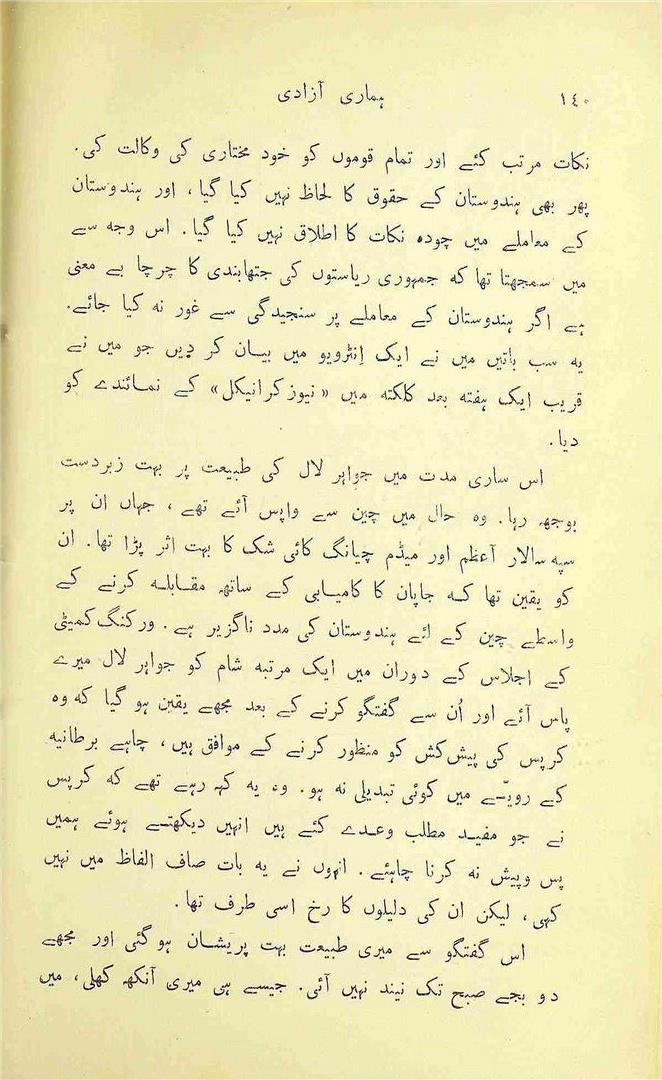 ۱٤۰ ہماری آزادی
نکات مرتب کئے اور تمام قوموں کو خود مختاری کی وکالت کی.
پھر بھی ہندوستان کے حقوق کا لحاظ نہیں کیا گیا، اور ہندوستان
کے معاملے میں چودہ نکات کا اطلاق نہیں کیا گیا. اس وجہ سے
میں سمجھتا تھا کہ جمہوری ریاستوں کی جتھابندی کا چرچا بے معنی
ہے اگر ہندوستان کے معاملے پر سنجیدگی سے غور نہ کیا جائے.
یہ سب باتیں میں نے ایک اِنٹرویو میں بیان کر دِیں جو میں نے
قریب ایک ہفتہ بعد کلکتہ میں «نیوز کرانیکل» کے نمائندے کو
دیا.
اس ساری مدت میں جواہر لال کی طبیعت پر بہت زبردست
بوجھ رہا. وہ حال میں چین سے واپس آئے تھے، جہاں ان پر
سپہ سالار آعظم اور میڈم چیانگ کائی شک کا بہت اثر پڑا تھا. ان
کو یقین تھا کہ جاپان کا کامیابی کے ساتھ مقابلہ کرنے کے
واسطے چین کے لئے ہندوستان کی مدد ناگزیر ہے. ورکنگ کمیٹی
کے اجلاس کے دوران میں ایک مرتبہ شام کو جواہر لال میرے
پاس آئے اور اُن سے گفتگو کرنے کے بعد مجھے یقین ہو گیا کہ وہ
کرپس کی پیش کش کو منظور کرنے کے موافق ہیں، چاہے برطانیہ
کے رویّے میں کوئی تبدیلی نہ ہو. وہ یہ کہہ رہے تھے کہ کرپس
نے جو مفید مطلب وعدے کئے ہیں انہیں دیکھتے ہوئے ہمیں
پس وپیش نہ کرنا چاہئے. انہوں نے یہ بات صاف الفاظ میں نہیں
کہی، لیکن ان کی دلیلوں کا رخ اسی طرف تھا.
اس گفتگو سے میری طبیعت بہت پریشان ہو گئی اور مجھے
دو بجے صبح تک نیند نہیں آئی. جیسے ہی میری آنکھ کھلی، میں